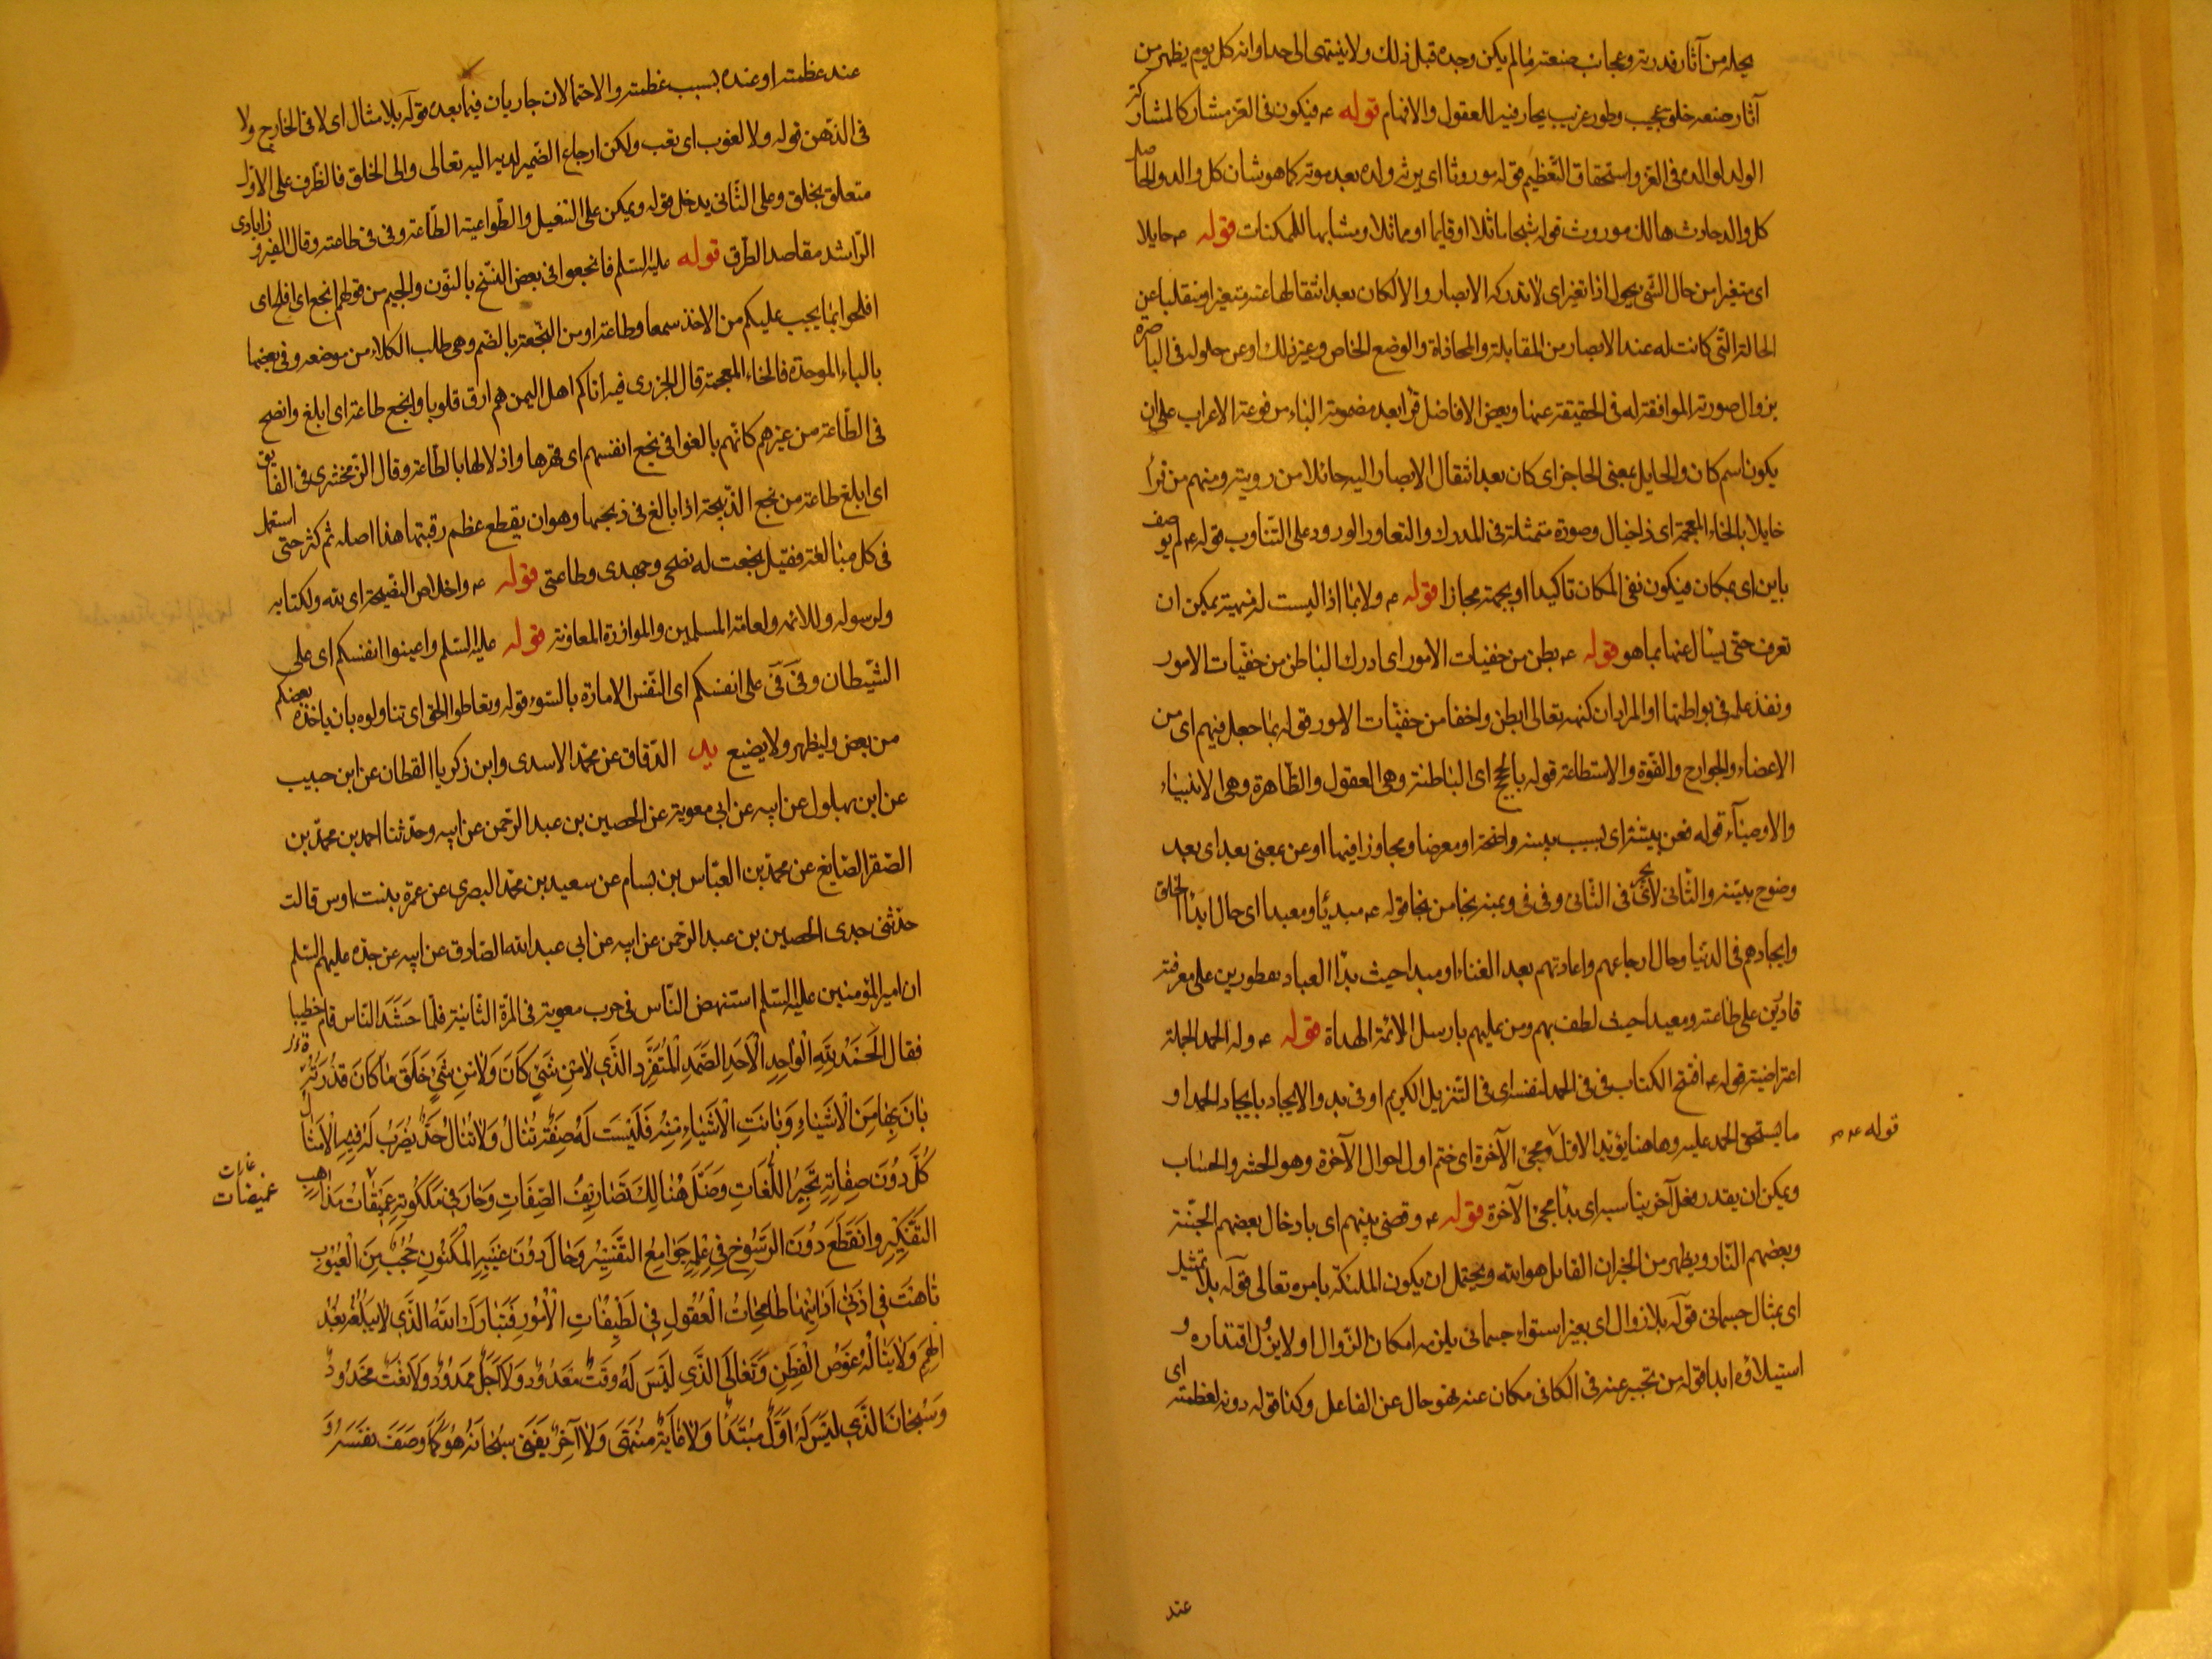 يجله من آثار قدرته وعجائب صنعته مما لم يكن وجده قبل ذلك ولا ينتهى الى حد او انه كل يوم يظهر من
آثار صنعه خلق عجيب وطور غريب يحار فيه العقول والافهام قوله ع فيكون فى العز مشاركا لمشاركة
الولد لوالده فى العز واستحقاق التعظيم قوله موروثا اى يرثه ولده بعد موته كما هو شان كل والد والحاصل
كل والد حادث هالك موروث قوله شبحا ماثلا اى قايما او مماثلا ومشابها للممكنات قوله ع حايلا
اى متغيرا من حال الشئ يحول اذا تغير اى لا تدركه الابصار والا لكان بعد انتقالها عنه متغيرا ومنقلبا عن
الحالة التى كانت له عند الابصار من المقابلة والمحاذاة والوضع الخاص وغير ذلك او عن حلوله فى الباصرة
بزوال صورته الموافقة له فى الحقيقة عنها وبعض الافاضل قرأ بعد مضمومة الباء مرفوعة الاعراب على ان
يكون اسم كان والحايل بمعنى الحاجز اى كان بعد انتقال الابصار اليه حائلا من رويته ومنهم من قرأ
خايلا بالخاء المعجمة اى ذا خيال وصورة متمثلة فى المدرك والتعاور الورود على التناوب قوله ع لم يوصف
باين اى بمكان فيكون نفى المكان تاكيدا او بجهة مجازا قوله ع ولا بما اذا ليست له مهية يمكن ان
تعرف حتى يسال عنها بما هو قوله ع بطن من خفيات الامور اى ادرك الباطن من خفيات الامور
ونفذ علمه فى بواطنها او المراد ان كنهه تعالى ابطن واخفا من خفيات الامور قوله بما جعل فيهم اى من
الاعضاء والجوارح والقوة والاستطاعة قوله بالحجج اى الباطنة وهى العقول والظاهرة وهى الانبياء
والاوصياء قوله فعن بينة اى بسبب بينة واضحة او معرضا ومجاوزا فيها او عن بمعنى بعد اى بعد
وضوح بينة والثانى لا يجرى فى الثانى وفى فى وبمنه نجا من نجا قوله ع مبدئا ومعيدا اى حال ابداء الخلق
وايجادهم فى الدنيا وحال ارجاعهم واعادتهم بعد الفناء او مبدا حيث بدا العباد مفطورين على معرفته
قادرين على طاعته ومعيدا حيث لطف بهم ومن عليهم بارسل الائمة الهداة قوله ع وله الحمد الجملة
اعتراضية قوله ع افتتح الكتاب فى فى الحمد لنفسه اى فى التنزيل الكريم او فى بدو الايجاد بايجاد الحمد او
ما يستحق الحمد عليه وما هنا يؤيد الاول ومجئ الآخرة اى ختم اول احوال الآخرة وهو الحشر والحساب
قوله ع م
ويمكن ان يقدر فعل آخر يناسبه اى بدا مجئ الآخرة قوله ع وقضى بينهم اى بادخال بعضهم الجنة
وبعضهم النار ويظهر من الخبر ان القائل هو الله ويحتمل ان يكون الملئكة بامره تعالى قوله بلا تمثيل
اى بمثال جسمانى قوله بلا زوال اى بغير استواء جسمانى يلزمه امكان الزوال او لا يزول اقتداره و
استيلاؤه ابدا قوله من تجبر عنه فى الكافى مكان عنه فهو حال عن الفاعل وكذا قوله دونه لعظمته اى
عند
عند عظمته او عنده بسبب عظمته والاحتمالان جاريان فيما بعده قوله بلا مثال اى لا فى الخارج ولا
فى الذهن قوله ولا لغوب اى تعب ويمكن ارجاع الضمير لديه اليه تعالى والى الخلق فالظرف على الاول
متعلق بخلق وعلى الثانى يدخل قوله ويمكن على التفعيل والطواعية الطاعة وفى فى طاعته وقال الفيروزابادى
الراشد مقاصد الطرق قوله عليه السلم فانجعوا فى بعض النسخ بالنون والجيم من قولهم انجع اى افلح اى
افلحوا بما يجب عليكم من الاخذ سمعا وطاعة او من النجعة بالضم وهى طلب الكلاء من موضعه وفى بعضها
بالباء الموحدة فالخاء المعجمة قال الجزرى فيه اتاكم اهل اليمن هم ارق قلوبا وابخع طاعة اى ابلغ وانصح
فى الطاعة من غيرهم كانهم بالغوا فى بخع انفسهم اى قهرها واذلالها بالطاعة وقال الزمخشرى فى الفايق
اى ابلغ طاعة من بخع الذبيحة اذا بالغ فى ذبحها وهو ان يقطع عظم رقبتها هذا اصله ثم كثر حتى استعمل
فى كل مبالغة فقيل بخعت له نصحى وجهدى وطاعتى قوله ع واخلاص النصيحة اى لله ولكتابه
ولرسوله وللائمه ولعامة المسلمين والموازرة المعاونة قوله عليه السلم واعينوا انفسكم اى على
الشيطان وفى فى على انفسكم اى النفس الامارة بالسوء قوله وتعاطوا الحق اى تناولوه بان ياخذه بعضكم
من بعض وليظهر ولا يضيع يد الدقاق عن محمد الاسدى وابن زكريا القطان عن ابن حبيب
عن ابن بهلول عن ابيه عن ابى معوية عن الحصين بن عبد الرحمن عن ابيه وحدثنا احمد بن محمد بن
الصقر الصايغ عن محمد بن العباس بن بسام عن سعيد بن محمد البصرى عن عمرة بنت اوس قالت
حدثنى جدى الحصين بن عبد الرحمن عن ابيه عن ابى عبد الله الصادق عن ابيه عن جده عليهم السلم
ان امير المؤمنين عليه السلم استنهض الناس فى حرب معوية فى المرة الثانية فلما حَشَدَ الناس قام خطيبا
فقال اَلْحَمْدُ لِلّٰهِ الْوَاحِدِ الْاَحَدِ الصَّمَدِ الْمُتَفَرِّدِ الَّذِي لَا مِنْ شَيْءٍ كَانَ وَلَا مِنْ شَيْءٍ خَلَقَ مَا كَانَ قُدْرَتُهُ
بَانَ بِهَا مِنَ الْاَشْيَاءِ وَبَانَتِ الْاَشْيَاءُ مِنْهُ فَلَيْسَتْ لَهُ صِفَةٌ تُنَالُ وَلَا حَدٌّ يُضْرَبُ لَهُ فِيهِ الْاَمْثَالُ
كَلَّ دُونَ صِفَاتِهِ تَحْبِيرُ اللُّغَاتِ وَضَلَّ هُنَالِكَ تَصَارِيفُ الصِّفَاتِ وَحَارَ فِي مَلَكُوتِهِ عَمِيقَاتُ مَذَاهِبِ
غيضات
التَّفْكِيرِ وَانْقَطَعَ دُونَ الرُّسُوخِ فِي عِلْمِهِ جَوَامِعُ التَّفْسِيرِ وَحَالَ دُونَ غَيْبِهِ الْمَكْنُونِ حُجُبٌ مِنَ الْغُيُوبِ
تَاهَتْ فِي اَدْنَى اَدَانِيهَا طَامِحَاتُ الْعُقُولِ فِي لَطِيفَاتِ الْاُمُورِ فَتَبَارَكَ اللهُ الَّذِي لَا يَبْلُغُهُ بُعْدُ
الْهِمَمِ وَلَا يَنَالُهُ غَوْصُ الْفِطَنِ وَتَعَالَى الَّذِي لَيْسَ لَهُ وَقْتٌ مَعْدُودٌ وَلَا اَجَلٌ مَمْدُودٌ وَلَا نَعْتٌ مَحْدُودٌ
وَسُبْحَانَ الَّذِي لَيْسَ لَهُ اَوَّلٌ مُبْتَدَأٌ وَلَا غَايَةٌ مُنْتَهَى وَلَا آخِرٌ يَفْنَى سُبْحَانَهُ هُوَ كَمَا وَصَفَ نَفْسَهُ وَ